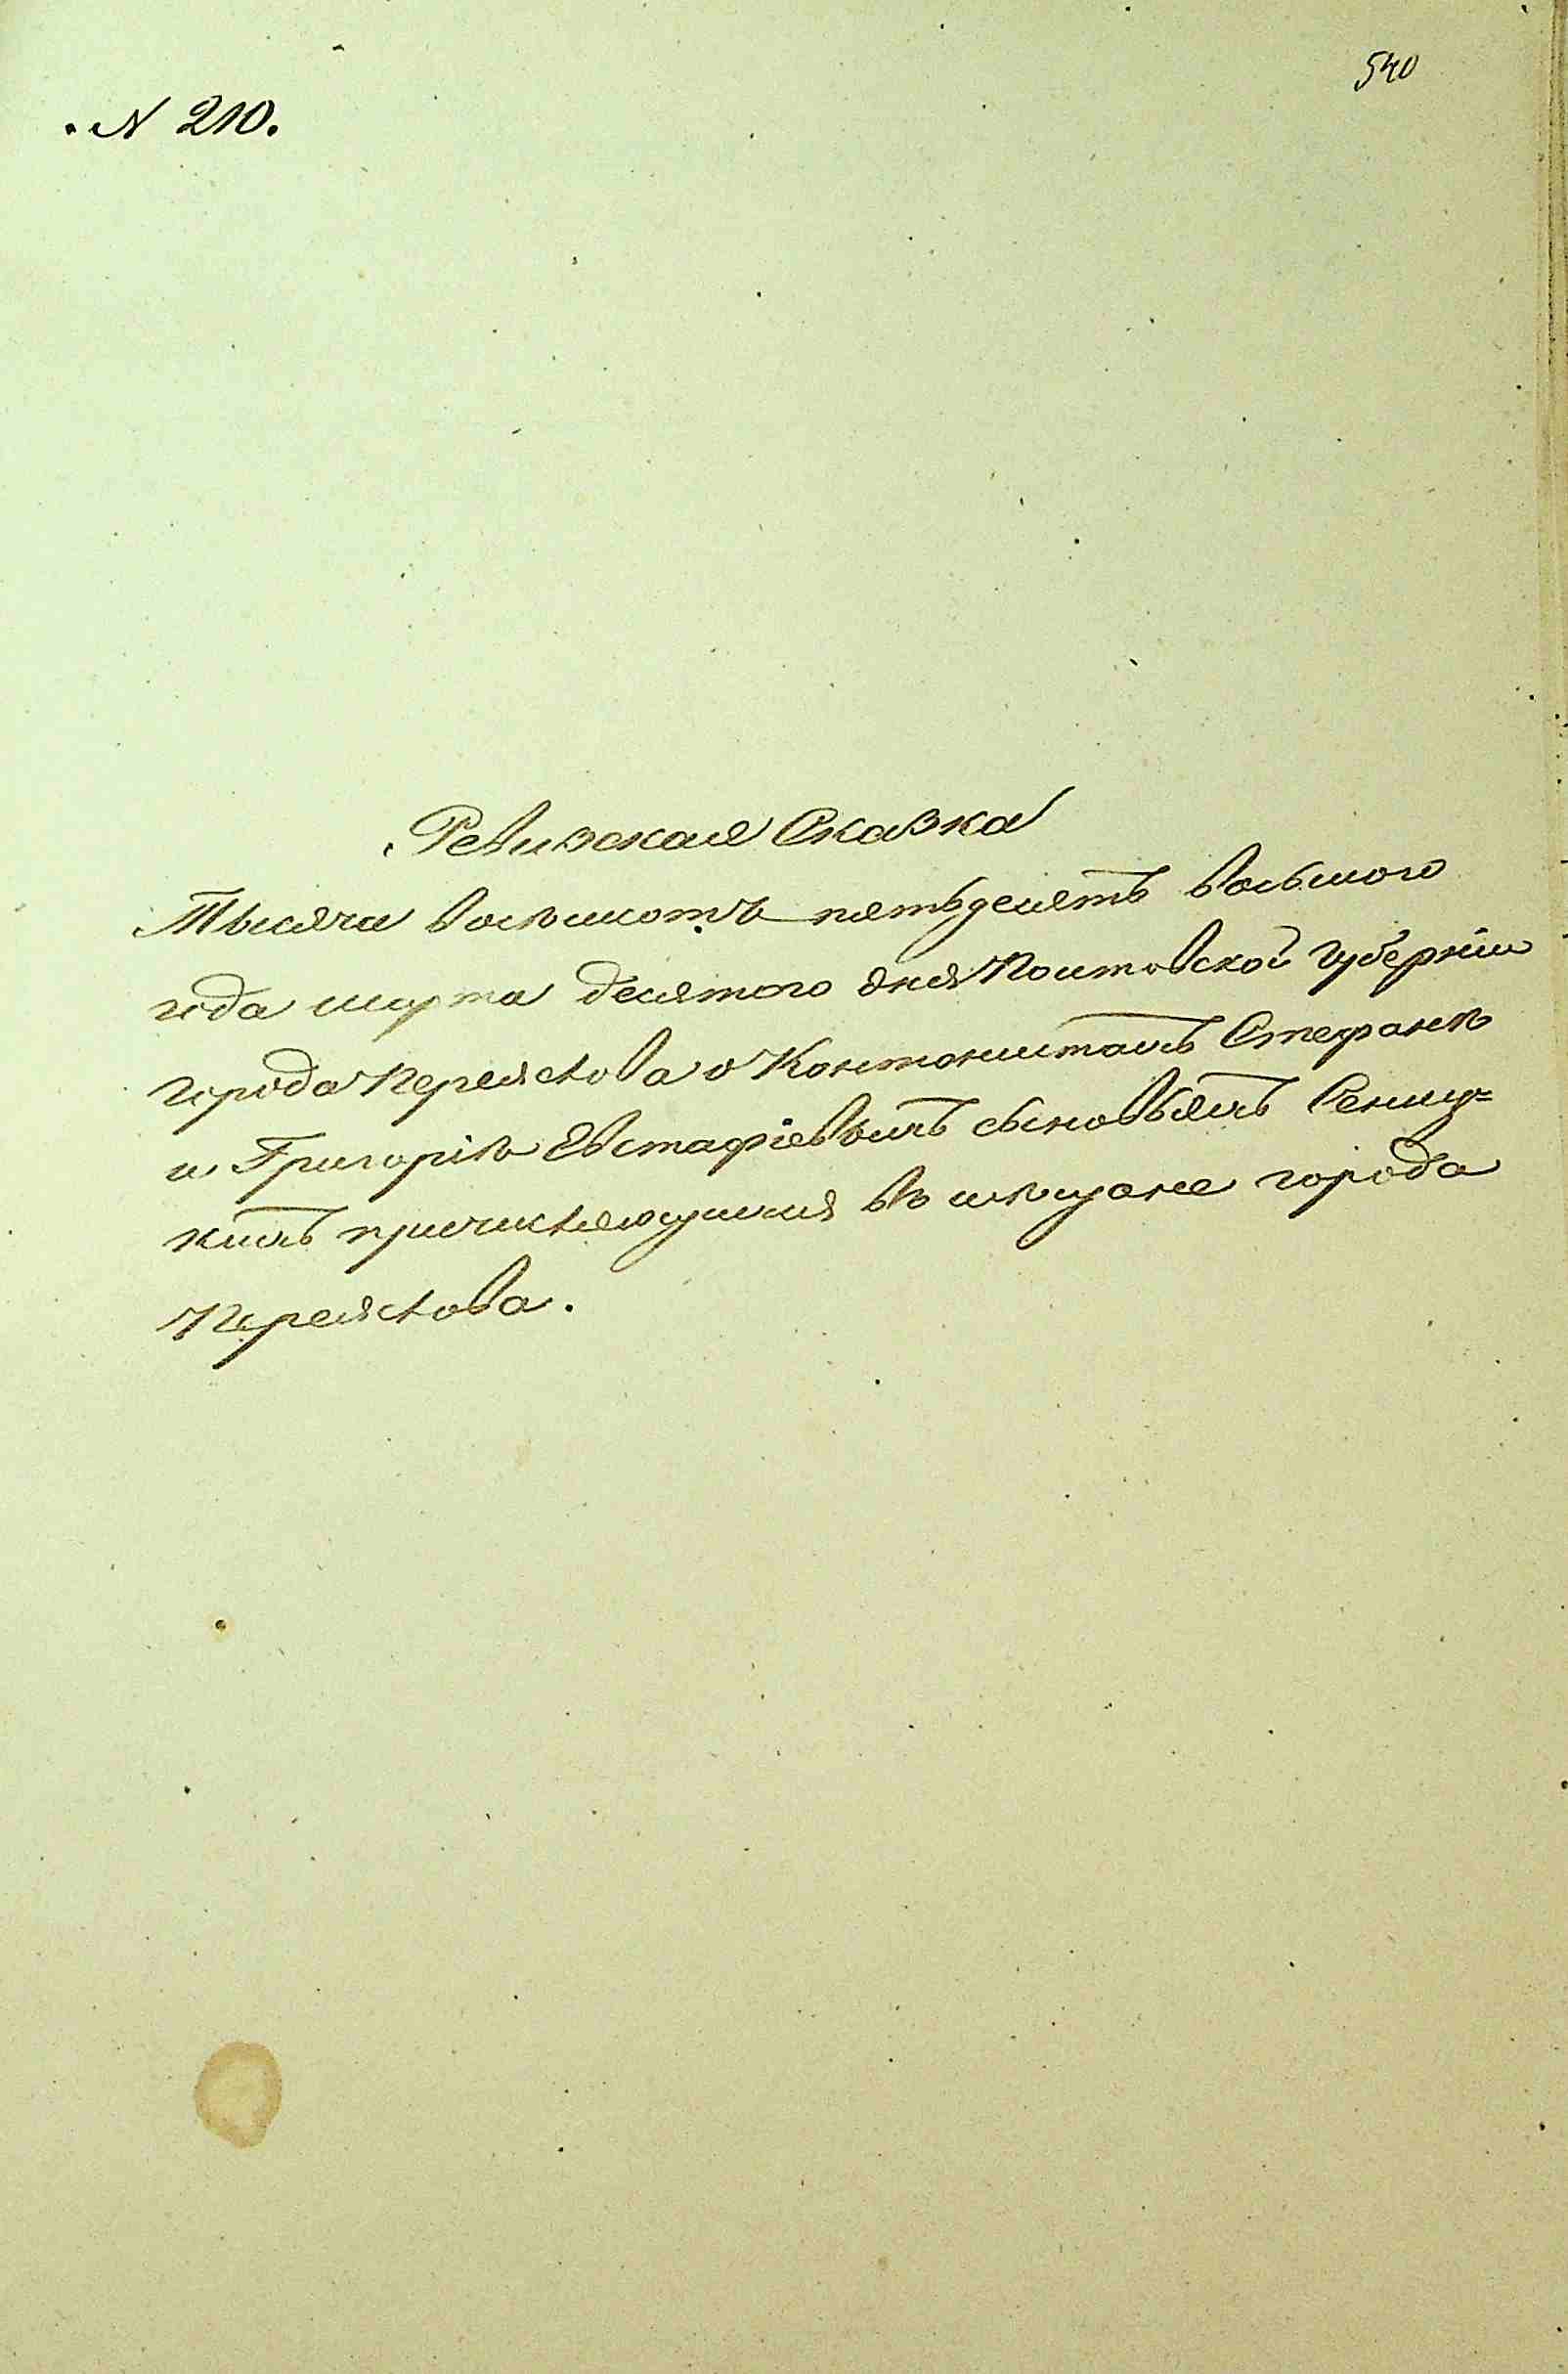 540
№ 210.
Ревизская Сказка
Тысяча восъмсотъ пятьдесятъ восьмого
года марта десятого дня Полтовской губерніи
города Переяслова о Кантонистахъ Стефанѣ
и Григоріѣ Евстафіевыхъ сыновьяхъ
причисляющихся въ мѣщане города
Переяслова.